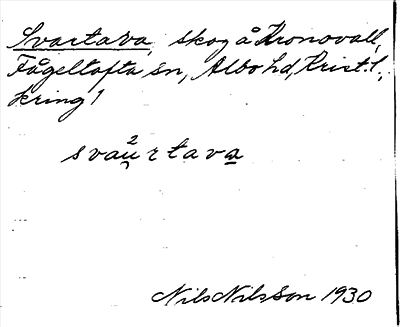 Svartava, skog å Kronovall,
Fågeltofta sn, Albo hd, Krist. l.,
kring 1
svau̯²rtava
Nils Nilsson 1930